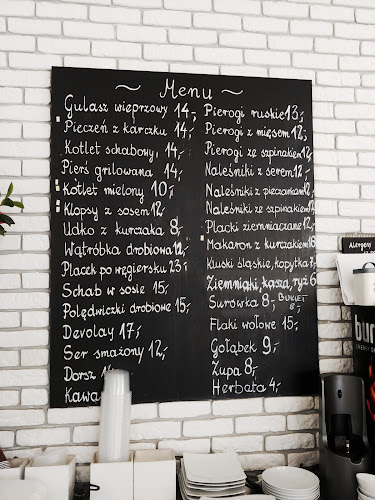 ~ Menu ~
Gulasz wieprzowy 14,-
Pieczeń z karczku 14,-
Kotlet schabowy, 14,-
Pierś grilowana 14,-
Kotlet mielony 10,-
Klopsy z sosem 12,-
Udko z kurczaka 8,-
Wątróbka drobiowa 12,-
Placek po węgiersku 23,-
Schab w sosie 15,-
Polędwiczki drobiowe 15,-
Devolay 17,-
Ser smażony 12,-
Dorsz
Kawa
Pierogi ruskie 13,-
Pierogi z mięsem 12,-
Pierogi ze szpinakiem 12,-
Naleśniki z serem 12,-
Naleśniki z pieczarkami 12,-
Naleśniki ze szpinakiem 12,-
Placki ziemniaczane 12,-
Makaron z kurczakiem
Kluski śląskie, kopytka 7,-
Ziemniaki, kasza, ryż 6
Surówka 8,- BUKIET 8,-
Flaki wołowe 15,-
Gołąbek 9,-
Zupa 8,-
Herbata 4,-